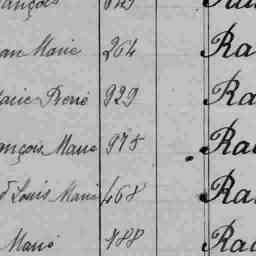 ançois 849
an Marie 264 Ra
arie René 929 Ra
ançois Marie 975 Ra
d Louis Marie 468 Ra
Marie 788 Ra